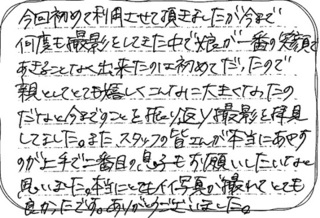 今回初めて利用させて頂きましたが今まで
何度も撮影をしてきた中で娘が一番の笑顔で
あきることなく出来たのは初めてだったので
親としてとても嬉しくこんなに大きくなったの
だなと今までのことを振り返り撮影を拝見
してました。また、スタッフの皆さんが本当にあやす
のが上手で二番目の息子もお願いしたいなと
思いました。本当にとてもイイ写真が撮れてとても
良かったです。ありがとうございました。